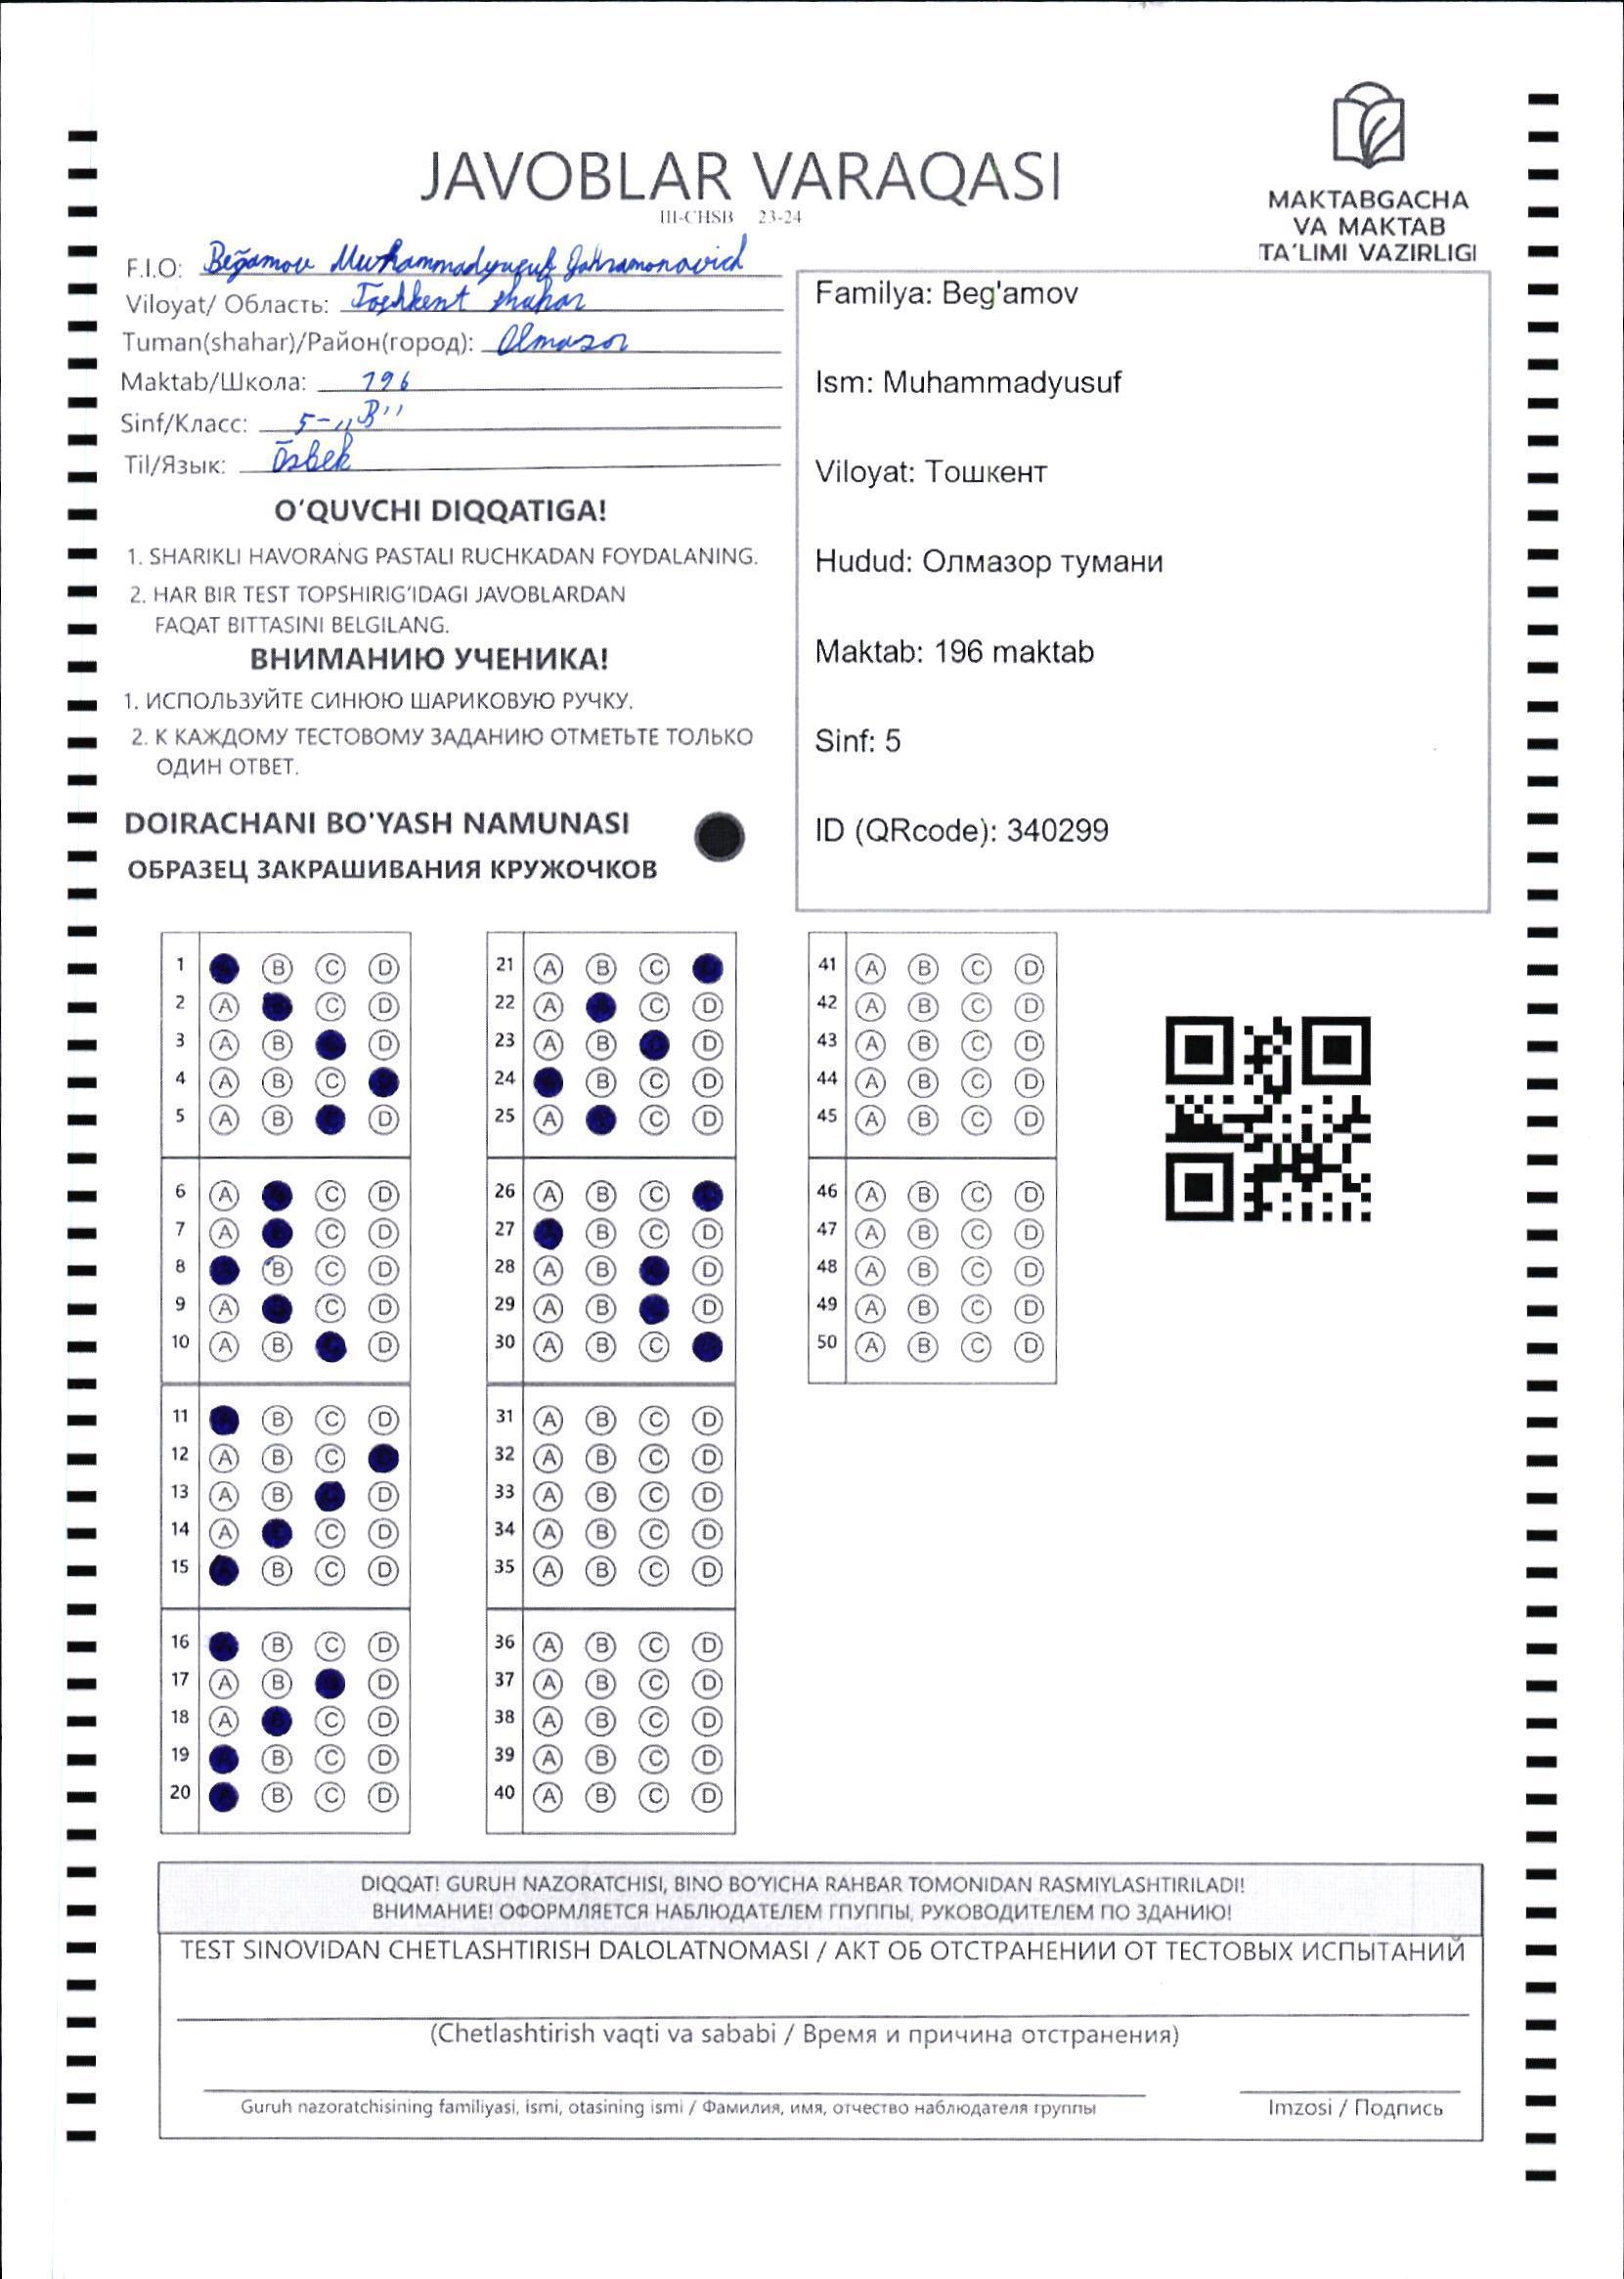 JAVOBLAR VARAQASI
III-CHSB 23-24
MAKTABGACHA
VA MAKTAB
TA'LIMI VAZIRLIGI
F.I.O: Beg̃amov Muhammadyusuf Qahramonovich
Viloyat/ Область: Toshkent shahar
Tuman(shahar)/Район(город): Olmazor
Maktab/Школа: 196
Sinf/Класс: 5-„B"
Til/Язык: Õzbek
O'QUVCHI DIQQATIGA!
1. SHARIKLI HAVORANG PASTALI RUCHKADAN FOYDALANING.
2. HAR BIR TEST TOPSHIRIG'IDAGI JAVOBLARDAN
FAQAT BITTASINI BELGILANG.
ВНИМАНИЮ УЧЕНИКА!
1. ИСПОЛЬЗУЙТЕ СИНЮЮ ШАРИКОВУЮ РУЧКУ.
2. К КАЖДОМУ ТЕСТОВОМУ ЗАДАНИЮ ОТМЕТЬТЕ ТОЛЬКО
ОДИН ОТВЕТ.
DOIRACHANI BO'YASH NAMUNASI
ОБРАЗЕЦ ЗАКРАШИВАНИЯ КРУЖОЧКОВ
Familya: Beg'amov
Ism: Muhammadyusuf
Viloyat: Тошкент
Hudud: Олмазор тумани
Maktab: 196 maktab
Sinf: 5
ID (QRcode): 340299
1 B C D
2 A C D
3 A B D
4 A B C
5 A B D
6 A C D
7 A C D
8 B C D
9 A C D
10 A B D
11 B C D
12 A B C
13 A B D
14 A C D
15 B C D
16 B C D
17 A B D
18 A C D
19 B C D
20 B C D
21 A B C
22 A C D
23 A B D
24 B C D
25 A C D
26 A B C
27 B C D
28 A B D
29 A B D
30 A B C
31 A B C D
32 A B C D
33 A B C D
34 A B C D
35 A B C D
36 A B C D
37 A B C D
38 A B C D
39 A B C D
40 A B C D
41 A B C D
42 A B C D
43 A B C D
44 A B C D
45 A B C D
46 A B C D
47 A B C D
48 A B C D
49 A B C D
50 A B C D
DIQQAT! GURUH NAZORATCHISI, BINO BO'YICHA RAHBAR TOMONIDAN RASMIYLASHTIRILADI!
ВНИМАНИЕ! ОФОРМЛЯЕТСЯ НАБЛЮДАТЕЛЕМ ГПУППЫ, РУКОВОДИТЕЛЕМ ПО ЗДАНИЮ!
TEST SINOVIDAN CHETLASHTIRISH DALOLATNOMASI / АКТ ОБ ОТСТРАНЕНИИ ОТ ТЕСТОВЫХ ИСПЫТАНИЙ
(Chetlashtirish vaqti va sababi / Время и причина отстранения)
Guruh nazoratchisining familiyasi, ismi, otasining ismi / Фамилия, имя, отчество наблюдателя группы
Imzosi / Подпись